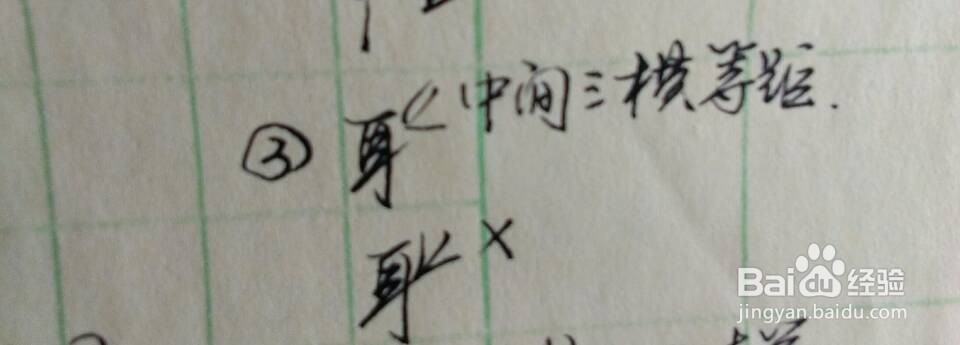 ③ 耳 中间三横等距.
耳 ×
Baidu经验
jingyan.baidu.com